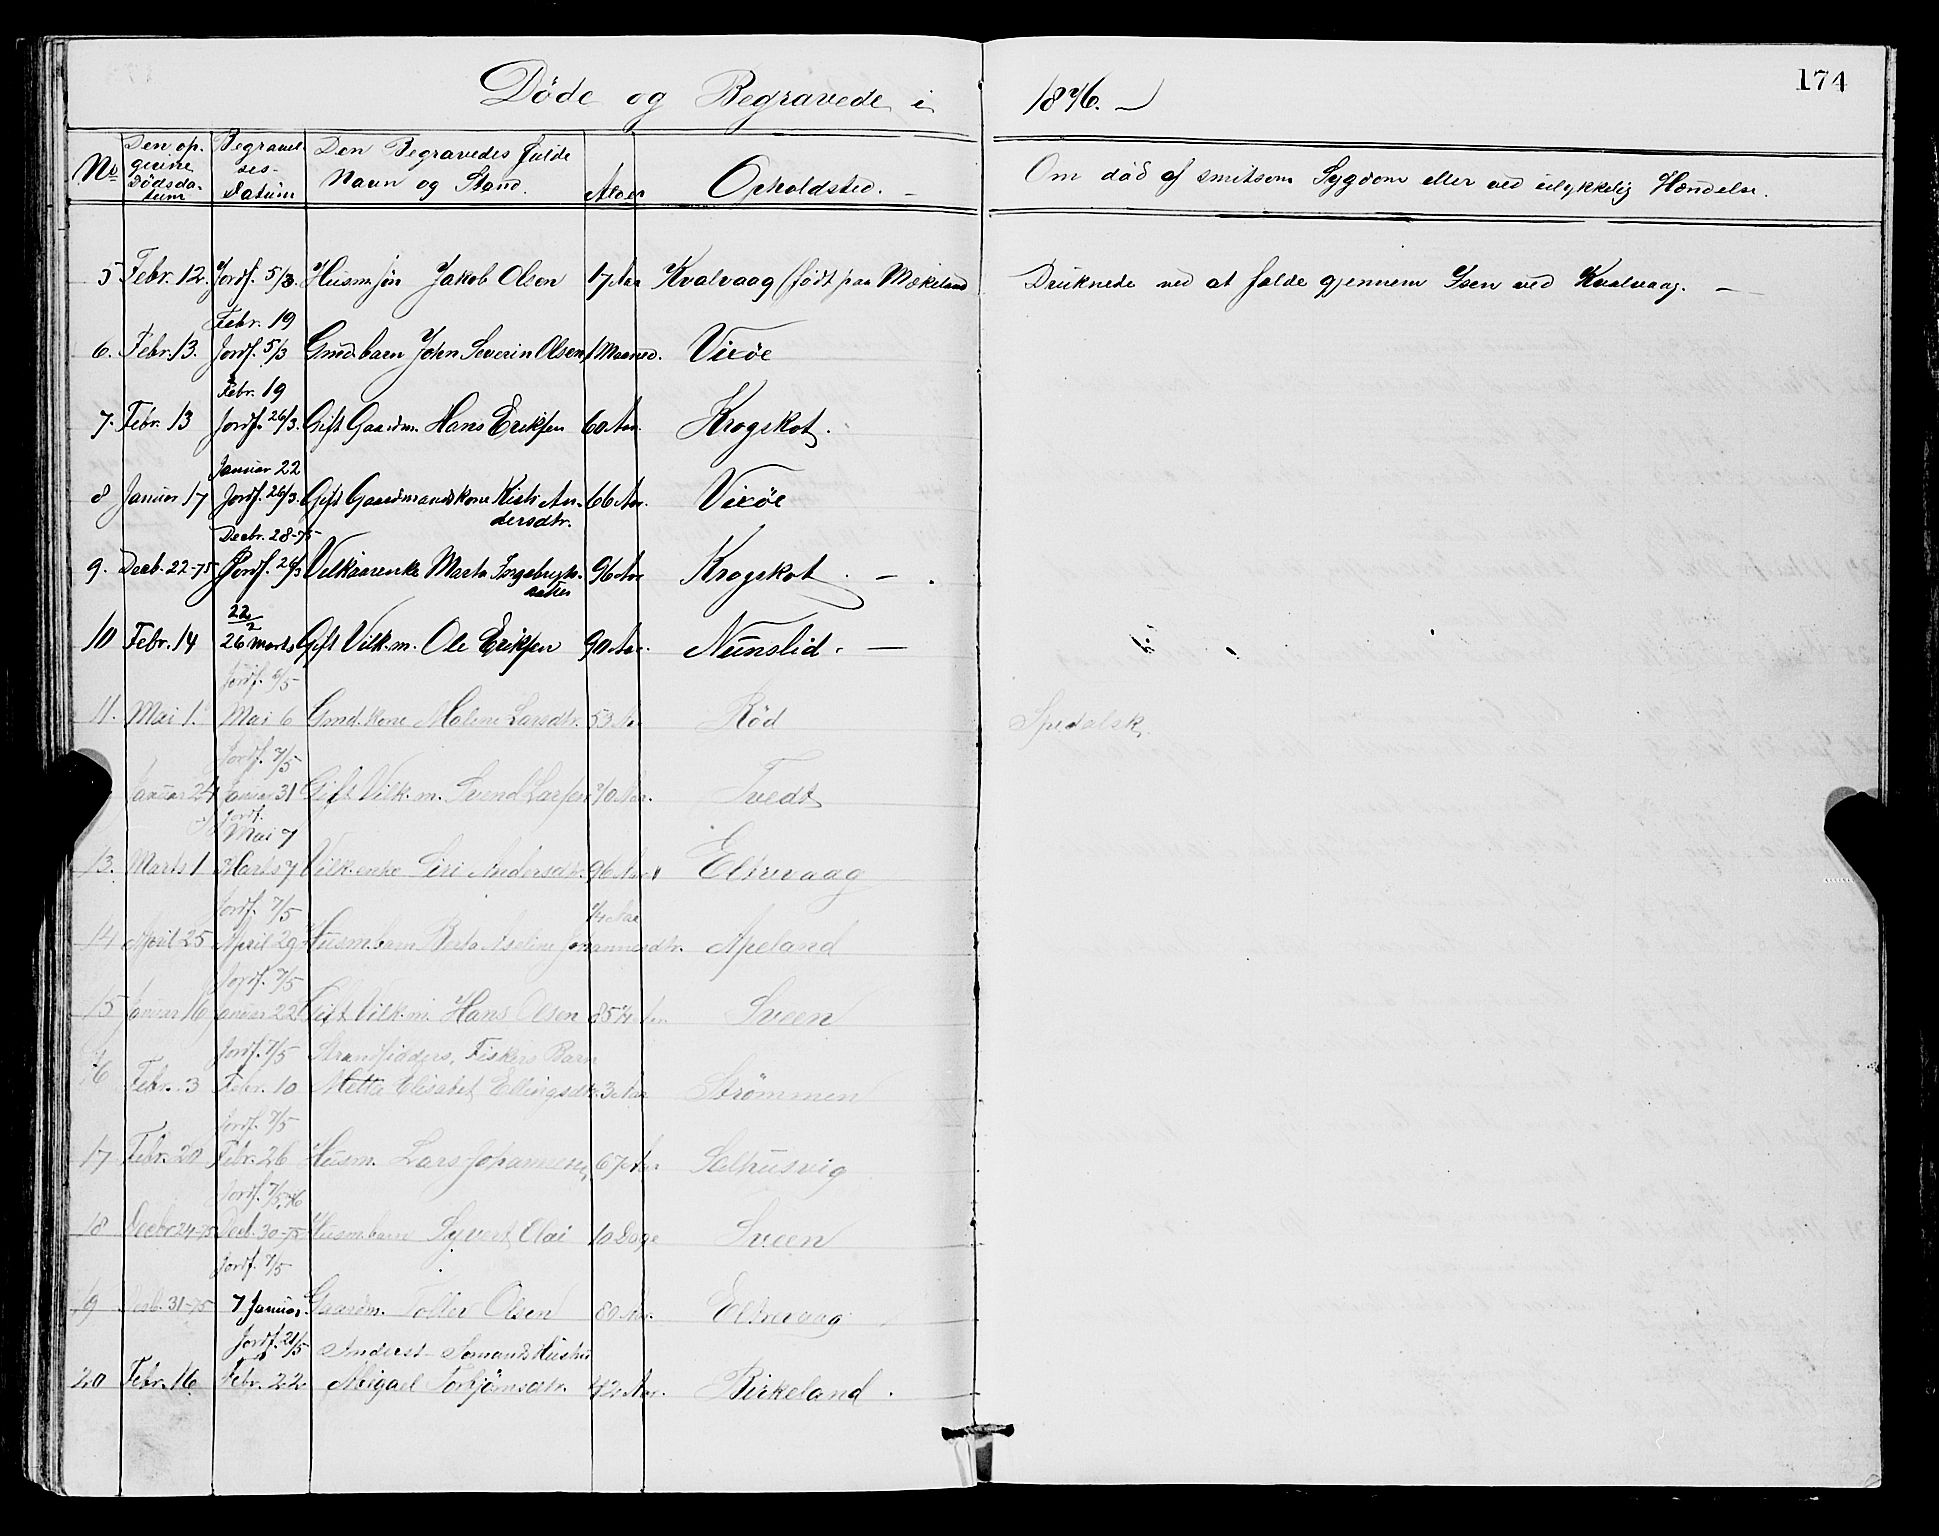 174
Döde og Begravede i 1876.
No Den opgivne Dödsdatum Begravelses-Datum Den Begravedes fulde Navn og Stand. Alder Opholdsted. Om död af smitsom Sygdom eller ved ulykkelig Hændelse.
5 Febr. 12. Jordf. 5/3. Husm.sön Jakob Olsen 17 Aar Kvalvaag (födt paa Mækeland Druknede ved at falde gjennem Isen ved Kvalvaag.
Febr. 19
6. Febr. 13. Jordf. 5/3 Gmd. barn John Severin Olsen 1 Maaned. Viröe
Febr. 19
7. Febr. 13 Jordf. 26/3. Gift Gaardm. Hans Eriksen 60 Aar. Krogskot.
Januar 22
8 Januar 17 Jordf. 26/3. Gift Gaardmandskone Kisti An- 66 Aar. Viröe
dersdtr.
Decbr. 28-75
9. Decb. 22-75 Jordf. 26/3 Vilkaarenke Marta Ingebrigts- 96 Aar Krogskot.
datter
22/2
10 Febr. 14 26 Marts Gift Vilk.m. Ole Eriksen 90 Aar. Nunslid.
Jordf. 6/5
11. Mai 1. Mai 6 Gmd. kone Malene Larsdtr. 53 Aar Röd Spedalsk.
Jordf. 7/5
Januar 24 Januar 31 Gift Vilk.m. Svend Larsen 70 Aar. Tvedt
Jordf.
Mai 7
13. Marts 1 Marts 7 Vilk.enke Siri Andersdtr. 96 Aar Eltrevaag
Jordf. 7/5 1/4 Aar
14 April 25 April 29 Husm.barn Berta Aseline Johannesdtr. Apeland
Jordf. 7/5
15 Januar 16 Januar 22 Gift Vilk.m. Hans Olsen 85 1/4 Aar Sveen
Jordf. 7/5 Strandsidders, Fiskers Barn
16 Febr. 3 Febr. 10 Metta Elisabet Ellingsdtr. 3 Aar Strömmen
Jordf. 7/5
17 Febr. 20 Febr. 26 Husm. Lars Johannesen 67 Aar Salhusvig
Jordf. 7/5 76
18 Decbr 24-75 Decb. 30-75 Husm.barn Syvert Olai 10 Dage Sveen
Jordf. 7/5
19 Decb. 31-75 7 Januar. Gaardm. Toller Olsen 80 Aar. Eltrevaag
Jordf. 21/5
20 Febr. 16 Febr. 22 Abigael Torbjörnsdtr. 42 Aar. Birkeland.